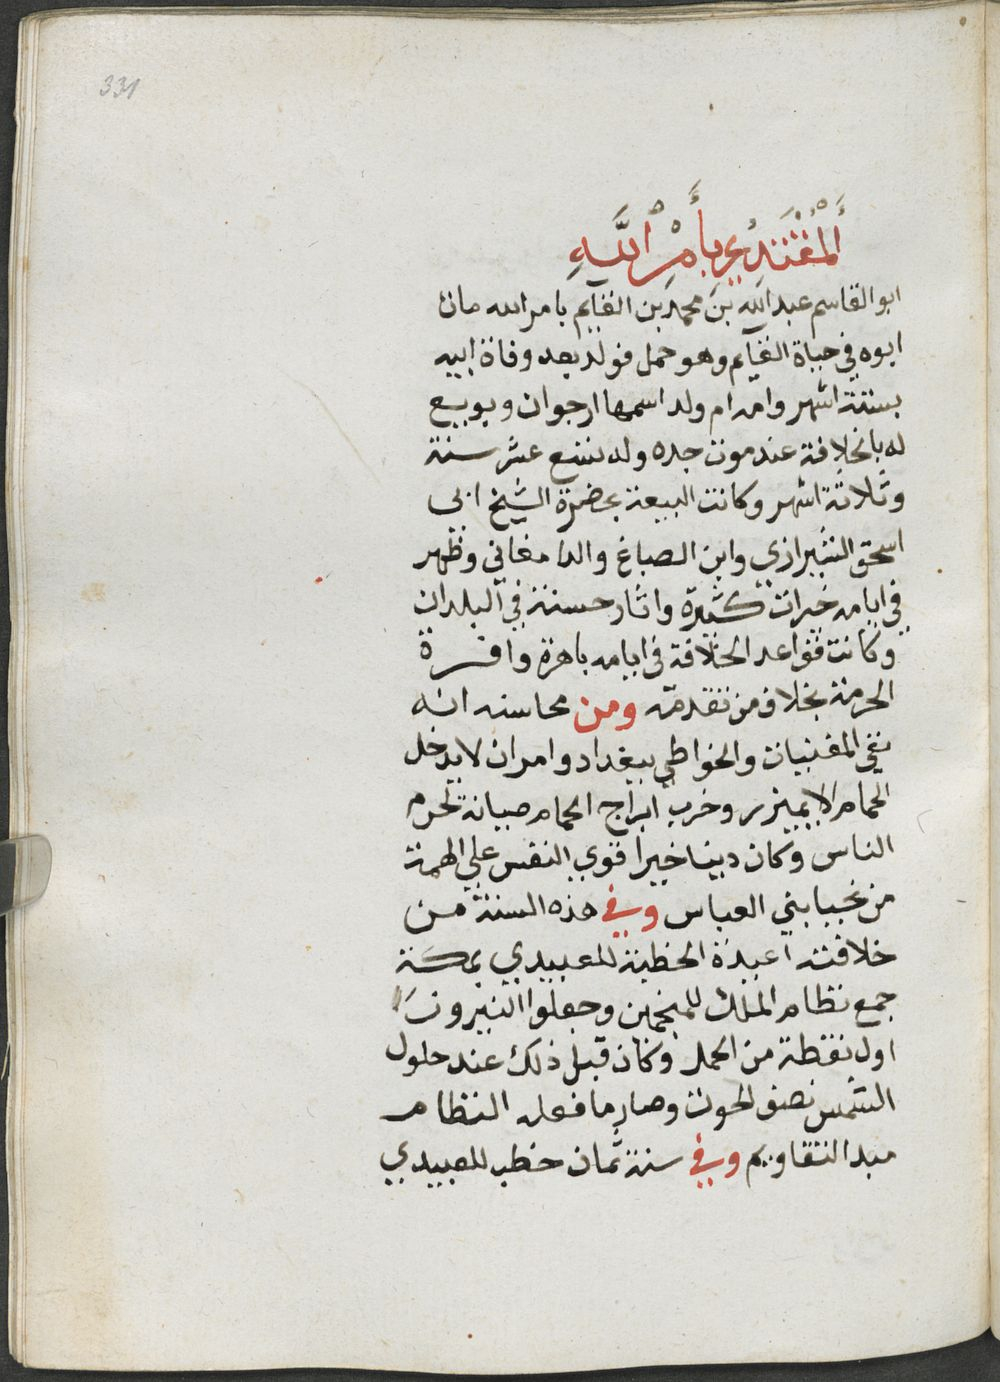 331
أَلْمُقْتَدِي بِأَمْرِ اللَّهِ
ابو القاسم عبد الله بن محمد بن القايم بامر الله مات
ابوه في حياة القايم وهو حمل فولد بعد وفاة ابيه
بستة اشهر وامه ام ولد اسمها ارجوان وبويع
له بالخلافة عند موت جده وله تسع عشر سنة
وثلاثة اشهر وكانت البيعة بحضرة الشيخ ابى
اسحق الشيرازي وابن الصباغ والدامغاني وظهر
في ايامه خيرات كثيرة واثار حسنة في البلدان
وكانت قواعد الخلافة في ايامه باهرة وافرة
الحرمة بخلاف من تقدمه ومن محاسنه انه
نفي المغنيات والخواطي ببغداد وامر ان لا يدخل
الحمام الا بميزر وخرب ابراج الحمام صيانة لحرم
الناس وكان دينا خيرا قوي النفس علي الهمة
من نجبا بني العباس وفي هذه السنة من
خلافته اعيدة الخطبة للعبيدي بمكة
جمع نظام الملك المنجمين وجعلوا النيروز
اول نقطة من الحمل وكان قبل ذلك عند حلول
الشمس نصف الحوت وصار ما فعله النظام
مبدا التقاويم وفي سنة ثمان خطب للعبيدي